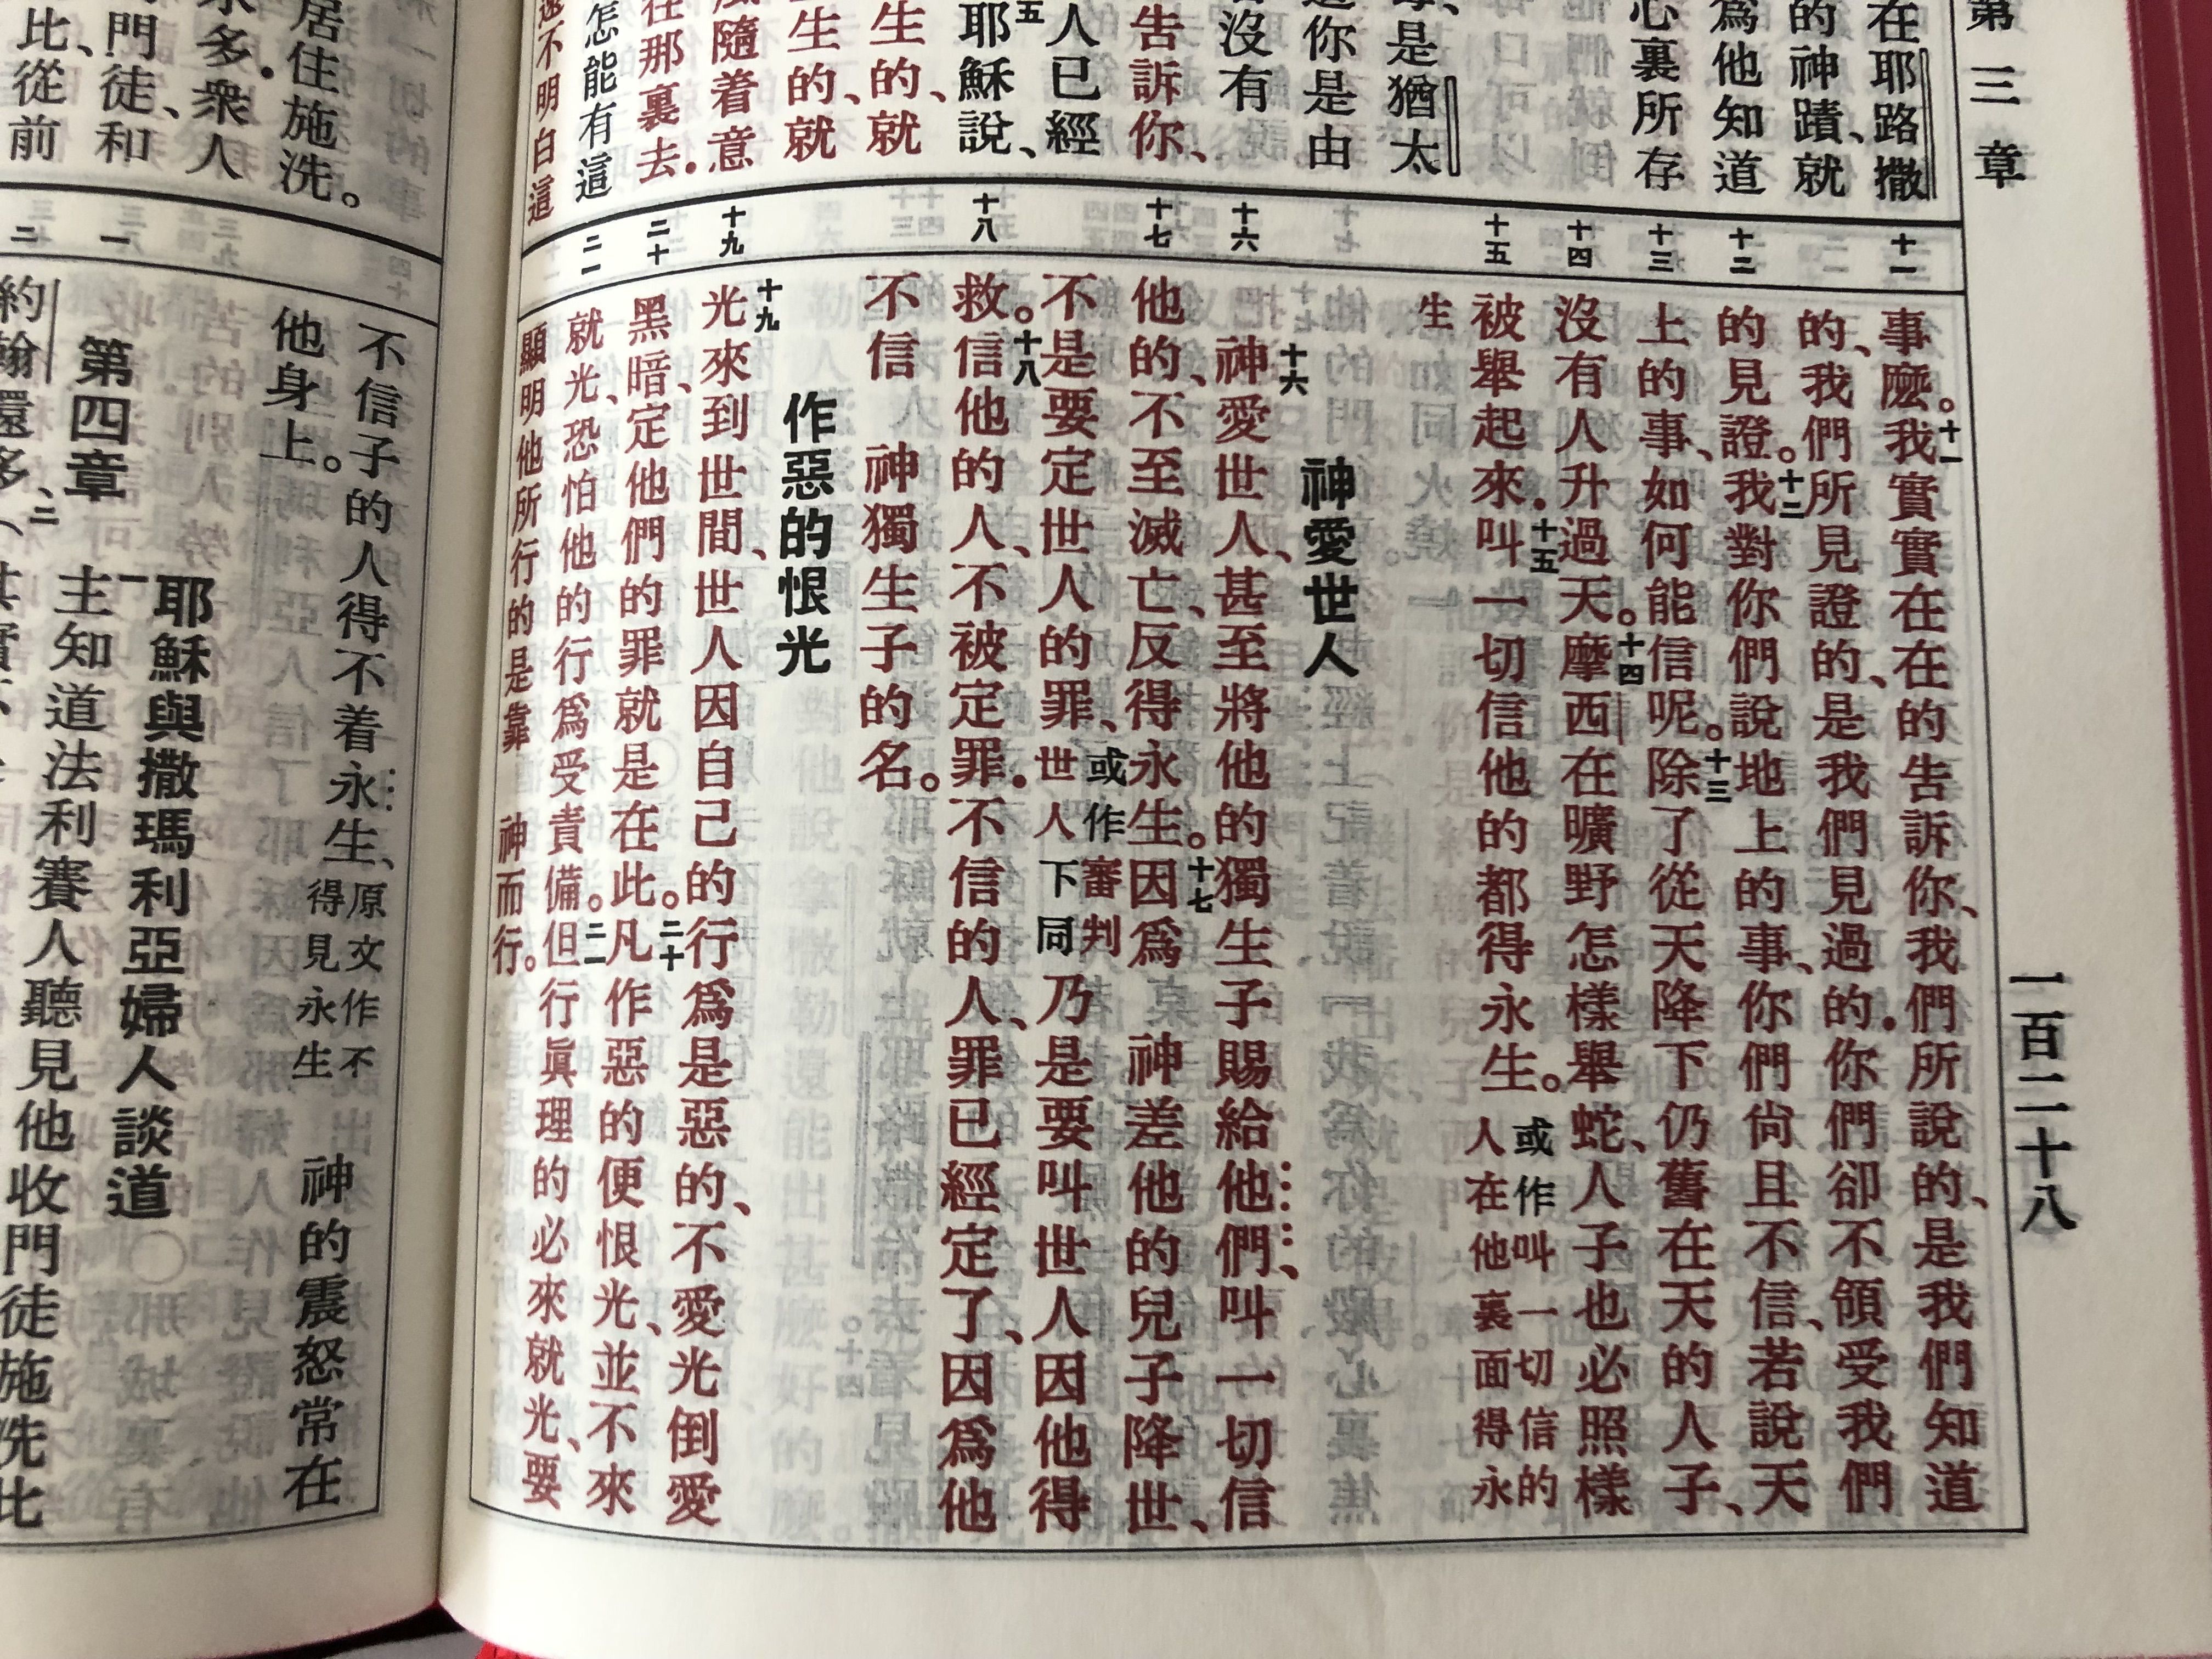 第三章
一百二十八
在耶路撒
的神蹟、就
爲他知道
心裏所存
是猶太
你是由
沒有
告訴你、
人已經
五耶穌說、
生的、就
生的、就
風隨着意
在那裏去.
怎能有這
不明白這
十一
十二
十三
十四
十五
十六
十七
十八
十九
二十
二一
事麼。十一我實實在在的告訴你、我們所說的、是我們知道
的、我們所見證的、是我們見過的.你們卻不領受我們
的見證。十二我對你們說地上的事、你們尙且不信、若說天
上的事、如何能信呢。十三除了從天降下仍舊在天的人子、
沒有人升過天。十四摩西在曠野怎樣舉蛇、人子也必照樣
被舉起來.十五叫一切信他的都得永生。或作叫一切信的人在他裏面得永
生
神愛世人
十六神愛世人、甚至將他的獨生子賜給他們、叫一切信
他的、不至滅亡、反得永生。十七因爲 神差他的兒子降世、
不是要定世人的罪、或作審判世人下同乃是要叫世人因他得
救。十八信他的人、不被定罪.不信的人、罪已經定了、因爲他
不信 神獨生子的名。
作惡的恨光
十九光來到世間、世人因自己的行爲是惡的、不愛光倒愛
黑暗、定他們的罪就是在此。二十凡作惡的便恨光、並不來
就光、恐怕他的行爲受責備。二一但行眞理的必來就光、要
顯明他所行的是靠 神而行。
居住施洗。
水多.衆人
門徒、和
比、從前
不信子的人得不着永生、原文作不得見永生 神的震怒常在
他身上。
第四章
耶穌與撒瑪利亞婦人談道
一主知道法利賽人聽見他收門徒施洗比
約翰還多、二